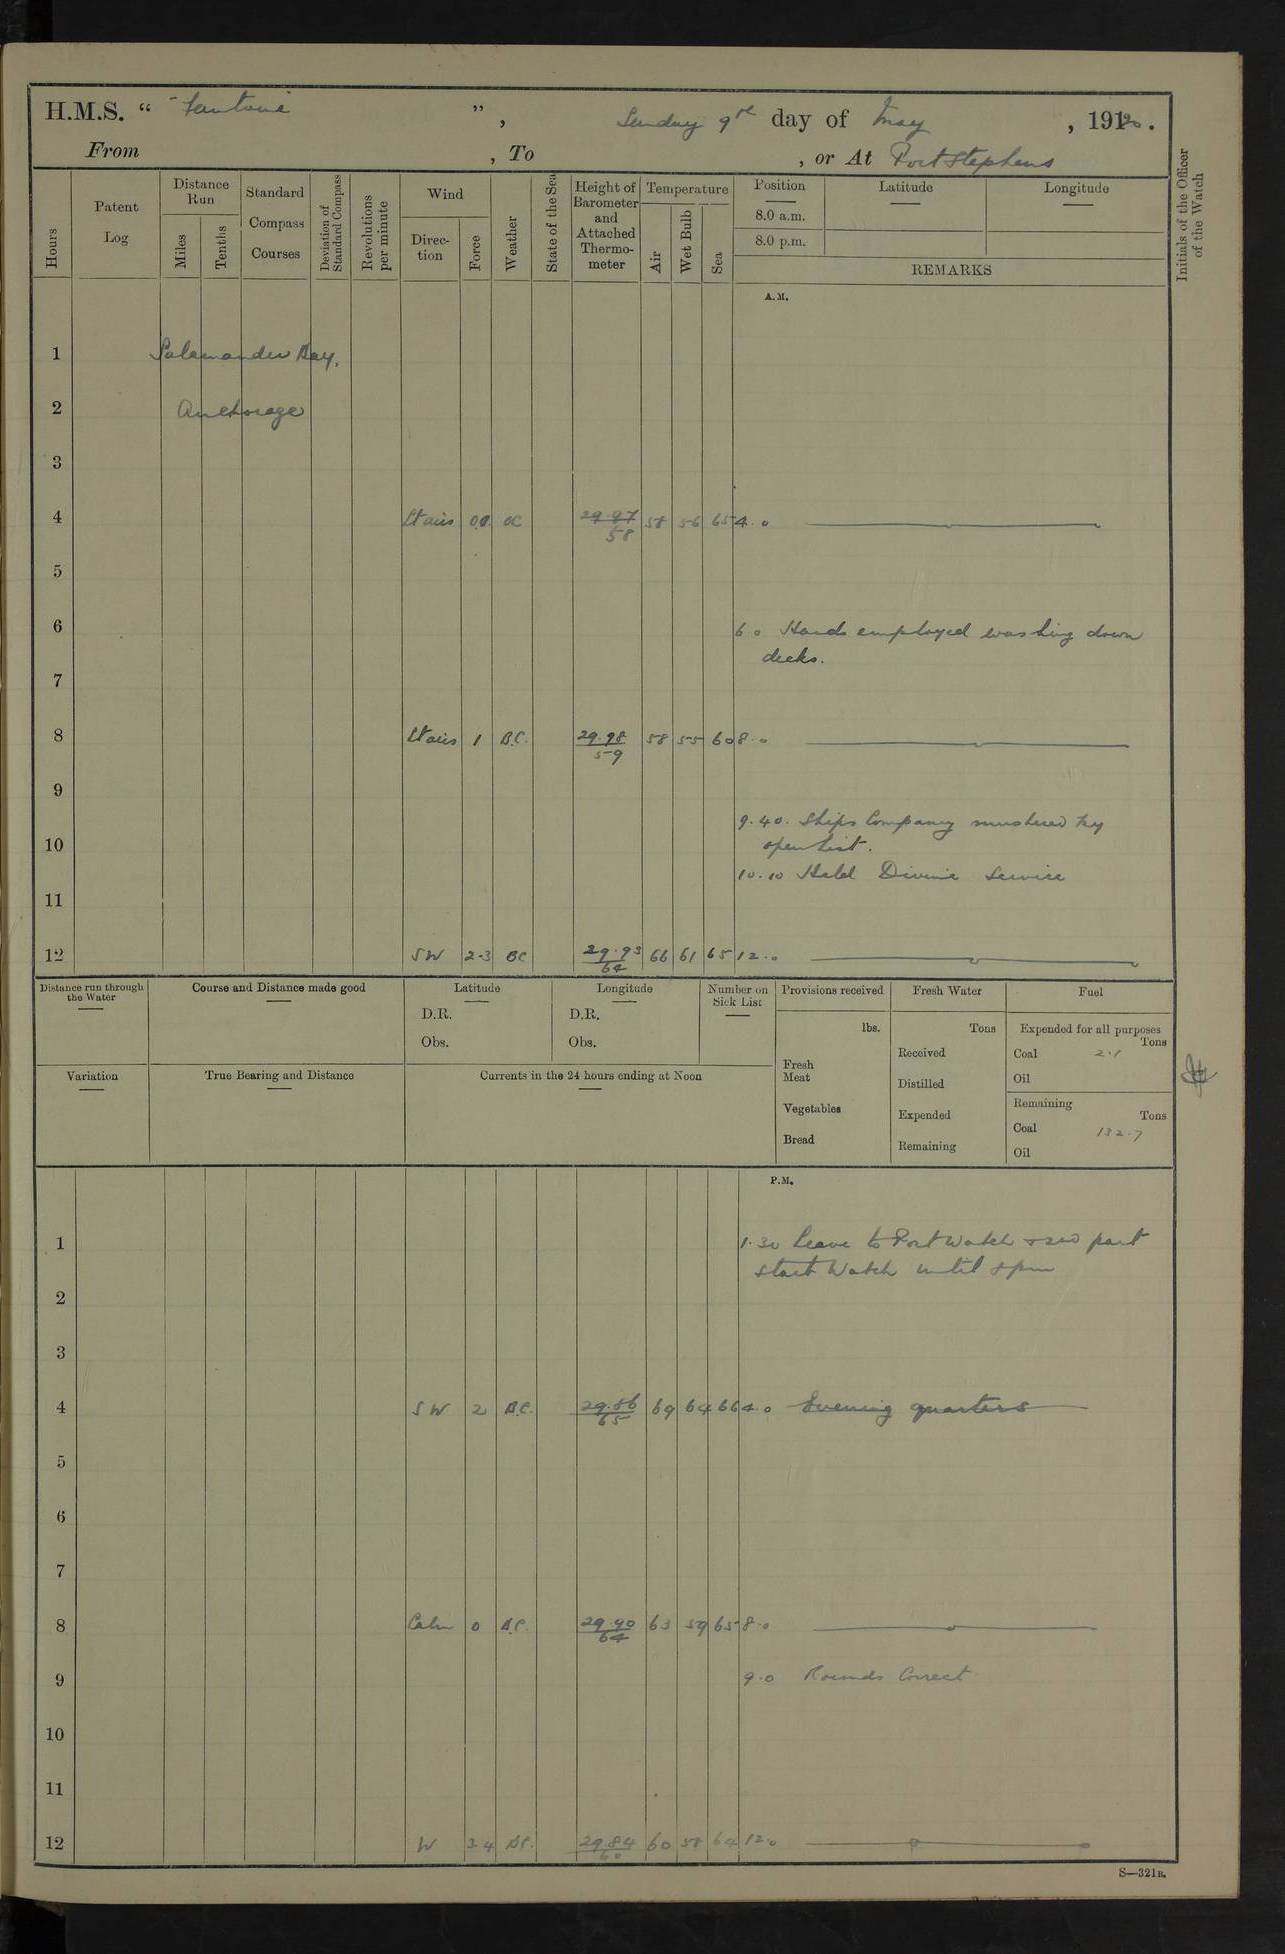 H.M.S. “ Fantome ” , Sunday 9th day of May , 1920 .
From , To , or At Port Stephens
Hours
Patent Log
Distance Run
Miles
Tenths
Standard Compass Courses
Deviation of Standard Compass
Revolutions per minute
Wind
Direc-tion
Force
Weather
State of the Sea
Height of Barometer and Attached Thermo-meter
Temperature
Air
Wet Bulb
Sea
Position Latitude Longitude
8.0 a.m.
8.0 p.m.
REMARKS
Initials of the Officer of the Watch
A.M.
1 Salamander Bay.
2 Anchorage
3
4 Lt airs OC 29.97 58 58 56 65 4.0
5
6 6 0 Hands employed washing down
decks.
7
8 Lt airs 1 B.C. 29.98 59 58 55 60 8.0
9
9.40. Ships Company mustered by
10 open list.
10.10 Held Divine Service
11
12 SW 2-3 BC 29.93 64 66 61 65 12.0
Distance run through the Water
Course and Distance made good
Latitude
D.R.
Obs.
Longitude
D.R.
Obs.
Number on Sick List
Provisions received
lbs.
Fresh Meat
Vegetables
Bread
Fresh Water
Tons
Received
Distilled
Expended
Remaining
Fuel
Expended for all purposes
Tons
Coal 2.1
Oil
Remaining
Tons
Coal 132.7
Oil
Variation
True Bearing and Distance
Currents in the 24 hours ending at Noon
P.M.
1 1.30 Leave to Port Watch & 2nd part
Starb Watch until 8 pm
2
3
4 SW 2 B.C. 29.86 65 69 64 66 4.0 Evening quarters
5
6
7
8 Calm 0 B.C. 29.90 64 63 59 65 8.0
9 9.0 Rounds Correct
10
11
12 W 3 4 B.C. 29.84 60 60 58 64 12.0
S—321B.